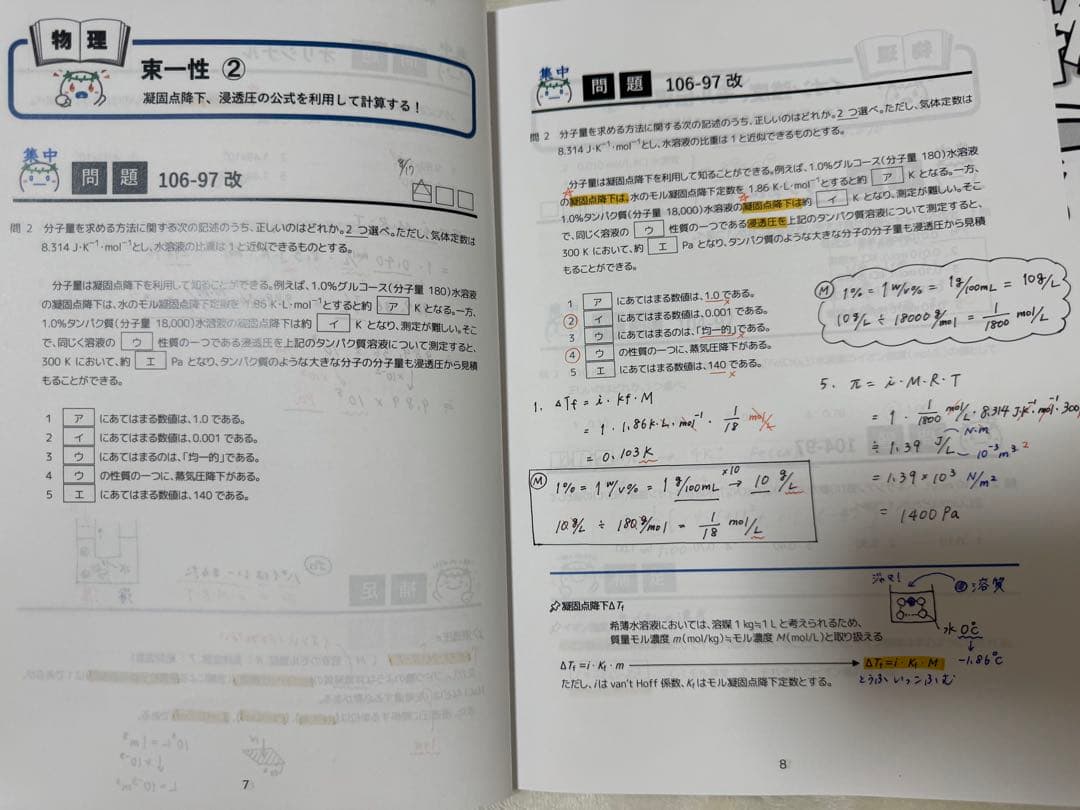 物理
束一性 ②
凝固点降下、浸透圧の公式を利用して計算する！
集中
問題 106-97 改
問 2 分子量を求める方法に関する次の記述のうち、正しいのはどれか。2 つ選べ。ただし、気体定数は
8.314 J·K⁻¹·mol⁻¹とし、水溶液の比重は 1 と近似できるものとする。
分子量は凝固点降下を利用して知ることができる。例えば、1.0%グルコース(分子量 180)水溶液
の凝固点降下は、水のモル凝固点降下定数を 1.86 K·L·mol⁻¹とすると約 ア K となる。一方、
1.0%タンパク質(分子量 18,000)水溶液の凝固点降下は約 イ K となり、測定が難しい。そこ
で、同じく溶液の ウ 性質の一つである浸透圧を上記のタンパク質溶液について測定すると、
300 K において、約 エ Pa となり、タンパク質のような大きな分子の分子量も浸透圧から見積
もることができる。
1 ア にあてはまる数値は、1.0 である。
2 イ にあてはまる数値は、0.001 である。
3 ウ にあてはまるのは、「均一的」である。
4 ウ の性質の一つに、蒸気圧降下がある。
5 エ にあてはまる数値は、140 である。
7
集中
問題 106-97 改
問 2 分子量を求める方法に関する次の記述のうち、正しいのはどれか。2 つ選べ。ただし、気体定数は
8.314 J·K⁻¹·mol⁻¹とし、水溶液の比重は 1 と近似できるものとする。
分子量は凝固点降下を利用して知ることができる。例えば、1.0%グルコース(分子量 180)水溶液
の凝固点降下は、水のモル凝固点降下定数を 1.86 K·L·mol⁻¹とすると約 ア K となる。一方、
1.0%タンパク質(分子量 18,000)水溶液の凝固点降下は約 イ K となり、測定が難しい。そこ
で、同じく溶液の ウ 性質の一つである浸透圧を上記のタンパク質溶液について測定すると、
300 K において、約 エ Pa となり、タンパク質のような大きな分子の分子量も浸透圧から見積
もることができる。
1 ア にあてはまる数値は、1.0 である。
2 イ にあてはまる数値は、0.001 である。
3 ウ にあてはまるのは、「均一的」である。
4 ウ の性質の一つに、蒸気圧降下がある。
5 エ にあてはまる数値は、140 である。
M 1% = 1 w/v% = 1 g/100mL = 10 g/L
10 g/L ÷ 18000 g/mol = 1/1800 mol/L
1. ΔTf = i・kf・M
= 1・1.86 K·L·mol⁻¹・1/18 mol/L
= 0.103 K
M 1% = 1 w/v% = 1 g/100mL ×10 → 10 g/L
10 g/L ÷ 180 g/mol = 1/18 mol/L
5. π = i・M・R・T
= 1・1/1800 mol/L・8.314 J·K⁻¹·mol⁻¹・300
≒ 1.39 J/L N·m 10⁻³m³ 2
= 1.39×10³ N/m²
= 1400 Pa
凝固点降下ΔTf
希薄水溶液においては、溶媒 1 kg≒1 L と考えられるため、
質量モル濃度 m(mol/kg)≒モル濃度 M(mol/L)と取り扱える
ΔTf=i・Kf・m → ΔTf=i・Kf・M
ただし、iは van't Hoff 係数、Kfはモル凝固点降下定数とする。
とうふ いっこ ふむ
ジャマ！
溶質
水 0℃
↓
-1.86℃
8